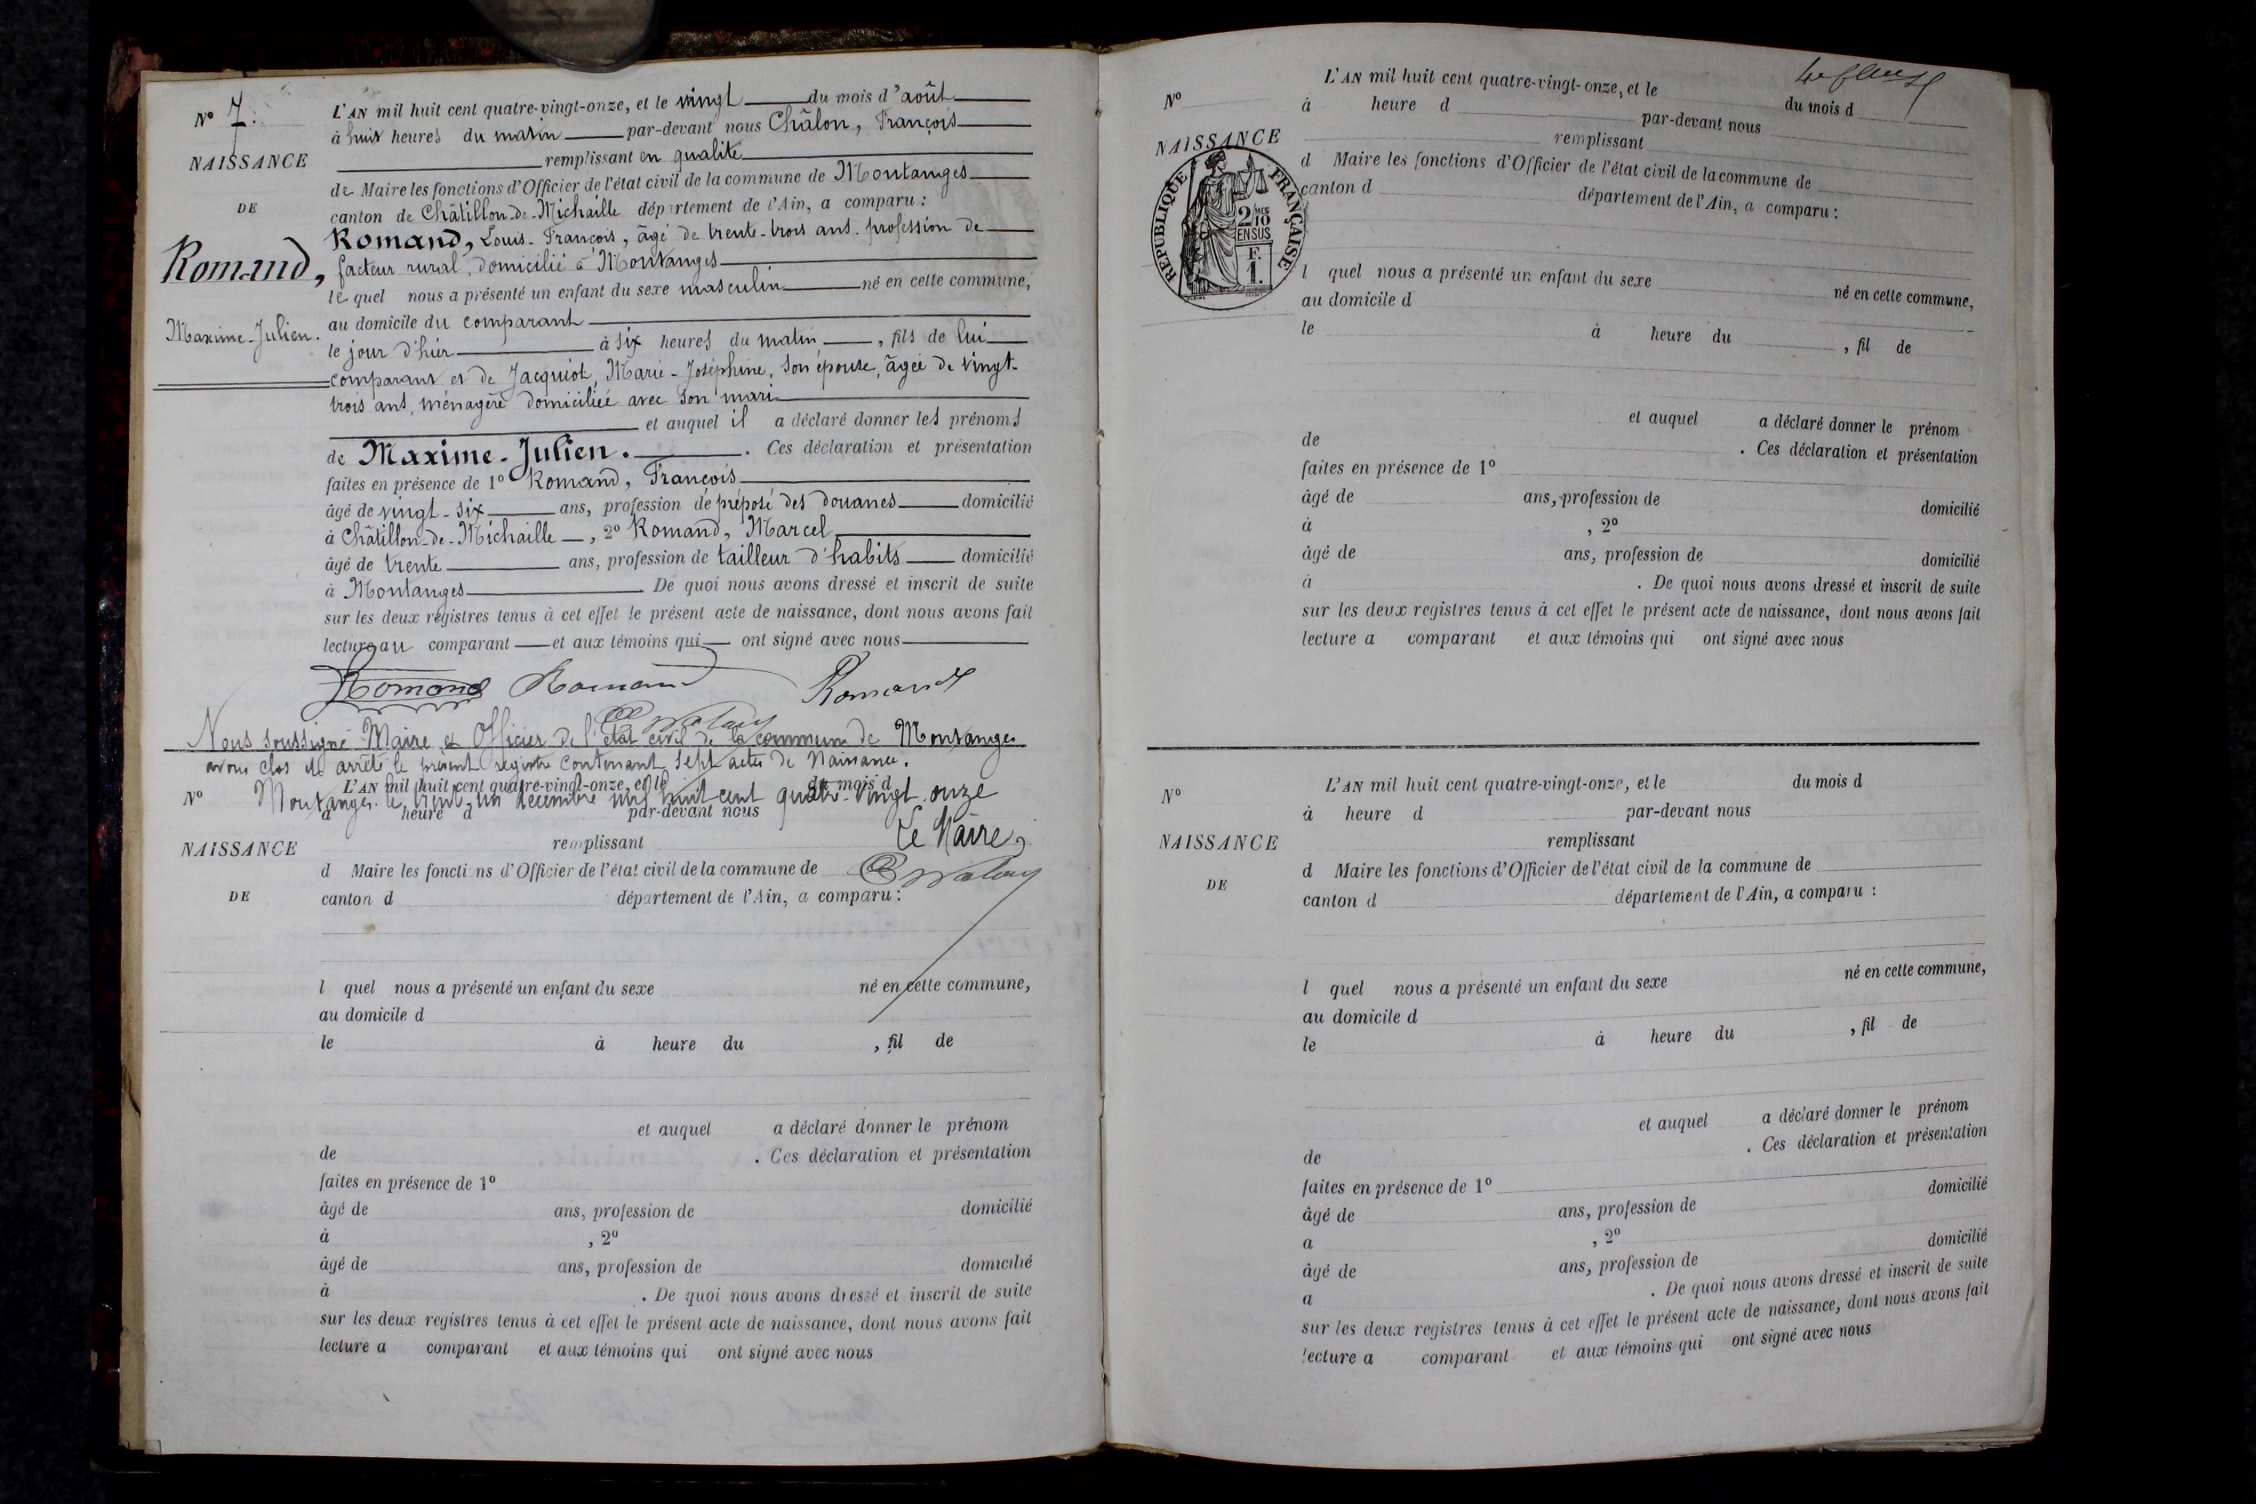 N° 7.
NAISSANCE
DE
Romand,
Maxime-Julien.
L'AN mil huit cent quatre-vingt-onze, et le vingt du mois d'août
à huit heures du matin par-devant nous Châlon, François
remplissant en qualité
de Maire les fonctions d'Officier de l'état civil de la commune de Montanges
canton de Châtillon-de-Michaille département de l'Ain, a comparu :
Romand, Louis-François, âgé de trente-trois ans. profession de
facteur rural, domicilié à Montanges
le quel nous a présenté un enfant du sexe masculin né en cette commune,
au domicile du comparant
le jour d'hier à six heures du matin, fils de lui
comparant et de Jacquiot, Marie-Joséphine, son épouse, âgée de vingt-
trois ans, ménagère domiciliée avec son mari
et auquel il a déclaré donner les prénoms
de Maxime-Julien. . Ces déclaration et présentation
faites en présence de 1° Romand, François
âgé de vingt-six ans, profession de préposé des douanes domicilié
à Châtillon-de-Michaille, 2° Romand, Marcel
âgé de trente ans, profession de tailleur d'habits domicilié
à Montanges De quoi nous avons dressé et inscrit de suite
sur les deux registres tenus à cet effet le présent acte de naissance, dont nous avons fait
lecture au comparant et aux témoins qui ont signé avec nous
Romand Romand Romand
Nous soussigné Maire et Officier de l'état civil de la commune de Montanges
avons clos et arrêté le présent registre contenant sept actes de Naissance.
Montanges le trente un décembre mil huit cent quatre-vingt onze
Le Maire,
N°
NAISSANCE
DE
L'AN mil huit cent quatre-vingt-onze, et le du mois d
à heure d par-devant nous
remplissant
d Maire les fonctions d'Officier de l'état civil de la commune de
canton d département de l'Ain, a comparu :
l quel nous a présenté un enfant du sexe né en cette commune,
au domicile d
le à heure du , fil de
et auquel a déclaré donner le prénom
de . Ces déclaration et présentation
faites en présence de 1°
âgé de ans, profession de domicilié
à , 2°
âgé de ans, profession de domicilié
à . De quoi nous avons dressé et inscrit de suite
sur les deux registres tenus à cet effet le présent acte de naissance, dont nous avons fait
lecture a comparant et aux témoins qui ont signé avec nous
N°
NAISSANCE
REPUBLIQUE FRANÇAISE
2 MES
10
EN SUS
F.
1.
L'AN mil huit cent quatre-vingt-onze, et le du mois d
à heure d par-devant nous
remplissant
d Maire les fonctions d'Officier de l'état civil de la commune de
canton d département de l'Ain, a comparu :
l quel nous a présenté un enfant du sexe né en cette commune,
au domicile d
le à heure du , fil de
et auquel a déclaré donner le prénom
de . Ces déclaration et présentation
faites en présence de 1°
âgé de ans, profession de domicilié
à , 2°
âgé de ans, profession de domicilié
à . De quoi nous avons dressé et inscrit de suite
sur les deux registres tenus à cet effet le présent acte de naissance, dont nous avons fait
lecture a comparant et aux témoins qui ont signé avec nous
N°
NAISSANCE
DE
L'AN mil huit cent quatre-vingt-onze, et le du mois d
à heure d par-devant nous
remplissant
d Maire les fonctions d'Officier de l'état civil de la commune de
canton d département de l'Ain, a comparu :
l quel nous a présenté un enfant du sexe né en cette commune,
au domicile d
le à heure du , fil de
et auquel a déclaré donner le prénom
de . Ces déclaration et présentation
faites en présence de 1°
âgé de ans, profession de domicilié
a , 2°
âgé de ans, profession de domicilié
a . De quoi nous avons dressé et inscrit de suite
sur les deux registres tenus à cet effet le présent acte de naissance, dont nous avons fait
lecture a comparant et aux témoins qui ont signé avec nous